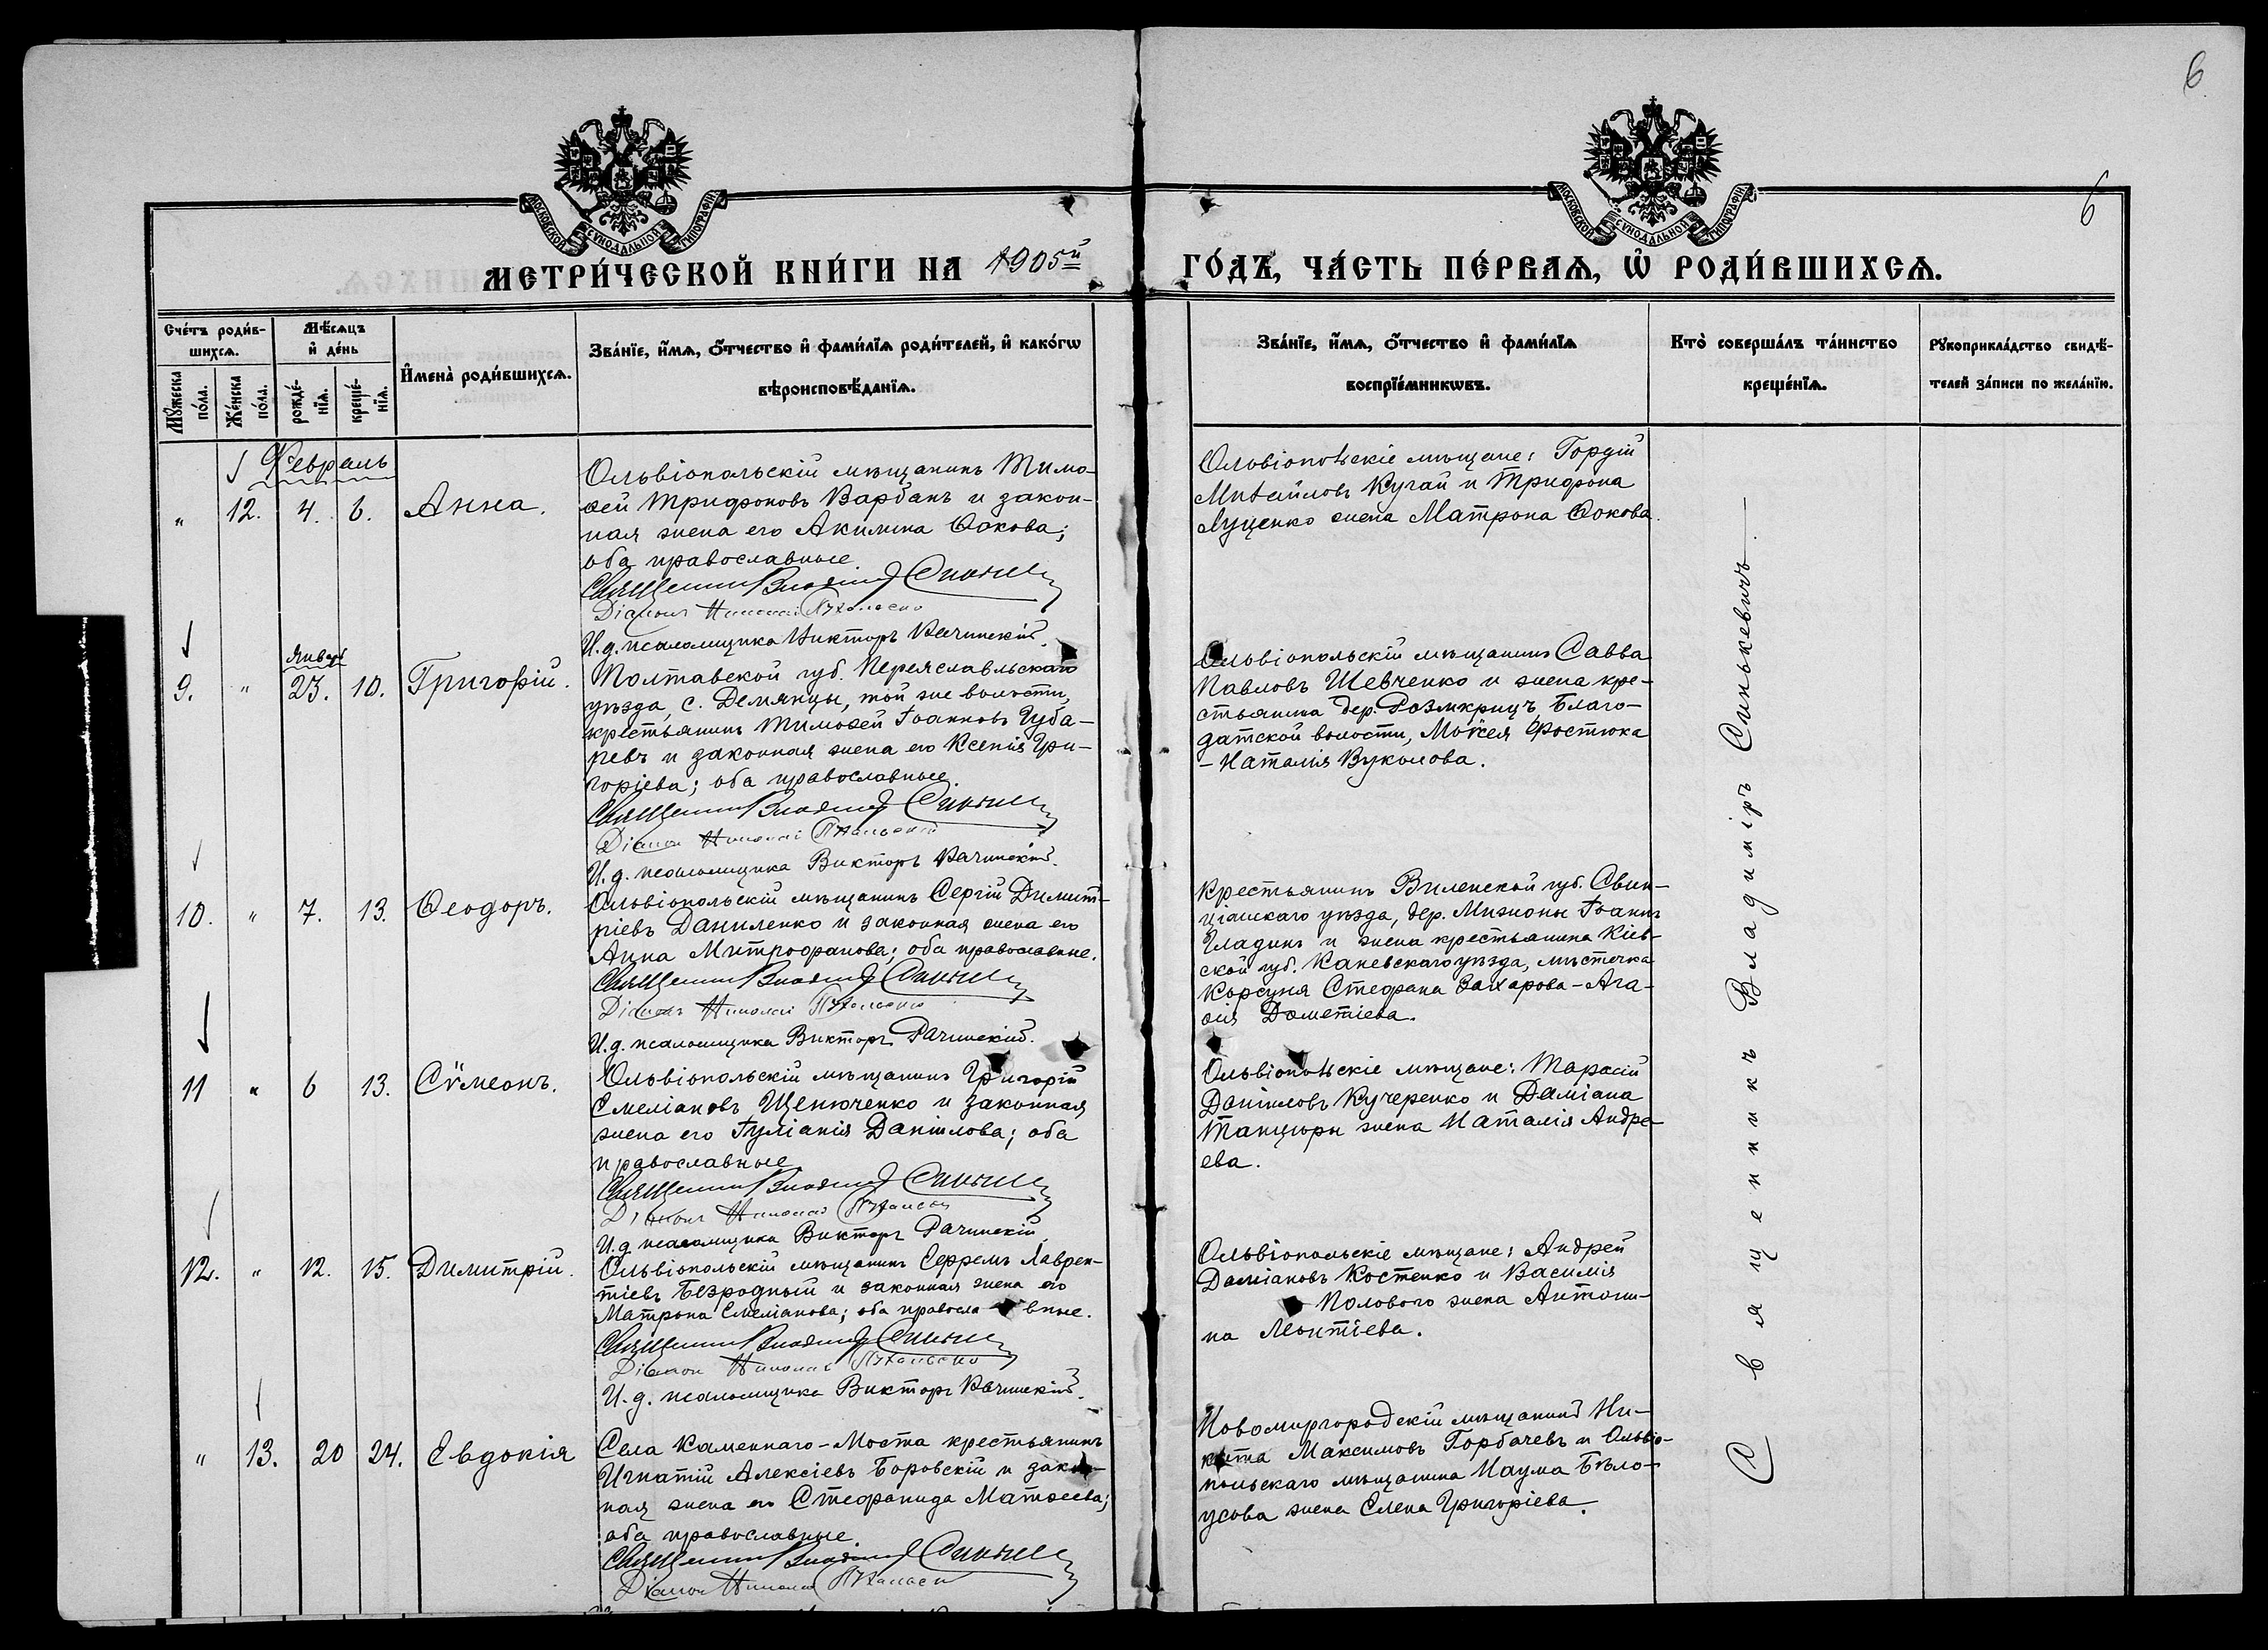 6
6
МОСКОВСКОЙ СѴНОДАЛЬНОЙ ТИПОГРАФІИ
МОСКОВСКОЙ СѴНОДАЛЬНОЙ ТИПОГРАФІИ
МЕТРИ́ЧЕСКОЙ КНИ́ГИ НА 1905й ГО́ДЪ, ЧА́СТЬ ПЕ́РВАѦ, Ѡ҆ РОДИ́ВШИХСѦ.
Сче́тъ роди́в-
шихсѧ.
Мꙋ́жеска
по́ла.
Же́нска
по́ла.
Мѣ́сѧцъ
и҆ де́нь
рожде́-
нїѧ.
креще́-
нїѧ.
И҆мена̀ роди́вшихсѧ.
Зва́нїе, и҆́мѧ, ѻ҆́тчество и҆ фами́лїѧ роди́телей, и҆ како́гѡ
вѣроисповѣ́данїѧ.
Зва́нїе, и҆́мѧ, ѻ҆́тчество и҆ фами́лїѧ
воспрїе́мникѡвъ.
Кто̀ соверша́лъ та́инство
креще́нїѧ.
Рꙋкоприкла́дство свидѣ́-
телей за́писи по жела́нїю.
Февраль
" 12. 4. 6. Анна.
Ольвіопольскій мѣщанинъ Тимо-
ѳей Трифоновъ Варбанъ и закон-
ная жена его Акилина Ѳокова;
оба православные.
Священникъ Владиміръ Синькевичъ
Діаконъ Николай
И. д. псаломщика Викторъ Рачинскій.
Ольвіопольскіе мѣщане: Гордій
Михайловъ Кучай и Трифона
Луценко жена Матрона Ѳокова.
Январь
9. " 23. 10. Григорій.
Полтавской губ. Переяславльскаго
уѣзда, с. Демянцы, той же волости,
крестьянинъ Тимоѳей Іоанновъ Губа-
ревъ и законная жена его Ксенія Гри-
горіева; оба православные.
Священникъ Владиміръ Синькевичъ
Діаконъ Николай
И. д. псаломщика Викторъ Рачинскій.
Ольвіопольскій мѣщанинъ Савва
Павловъ Шевченко и жена кре-
стьянина дер. Розмкрицъ Благо-
датской волости, Моѵсея Фостюка
- Наталія Вуколова.
10. " 7. 13. Ѳеодоръ.
Ольвіопольскій мѣщанинъ Сергій Димит-
ріевъ Даниленко и законная жена его
Анна Митрофанова; оба православные.
Священникъ Владиміръ Синькевичъ
Діаконъ Николай
И. д. псаломщика Викторъ Рачинскій.
Крестьянинъ Виленской губ. Свен-
ціанскаго уѣзда, дер. Мижоны Іоаннъ
Гладинъ и жена крестьянина Кіев-
ской губ. Каневскаго уѣзда, мѣстечка
Корсуня Стефана Захарова - Ага-
ѳія Дометіева.
11 " 6 13. Сѵмеонъ.
Ольвіопольскій мѣщанинъ Григорій
Емеліановъ Щенюченко и законная
жена его Іуліанія Даніилова; оба
православные.
Священникъ Владиміръ Синькевичъ
Діаконъ Николай
И. д. псаломщика Викторъ Рачинскій.
Ольвіопольскіе мѣщане: Тарасій
Даніиловъ Кучеренко и Даміана
Танцюры жена Наталія Андре-
ева.
12. " 12. 15. Димитрій.
Ольвіопольскій мѣщанинъ Ефремъ Лаврен-
тіевъ Безродный и законная жена его
Матрона Емеліанова; оба православные.
Священникъ Владиміръ Синькевичъ
Діаконъ Николай
И. д. псаломщика Викторъ Рачинскій.
Ольвіопольскіе мѣщане: Андрей
Даміановъ Костенко и Василія
Полового жена Антони-
на Леонтіева.
" 13. 20 24. Евдокія
Села Каменнаго-Моста крестьянинъ
Игнатій Алексіевъ Боровскій и закон-
ная жена его Стефанида Матѳеева;
оба православные.
Священникъ Владиміръ Синькевичъ
Діаконъ Николай
Новомиргородскій мѣщанинъ Ни-
кита Максимовъ Горбачевъ и Ольвіо-
польскаго мѣщанина Наума Бѣло-
усова жена Елена Григоріева.
Священникъ Владиміръ Синькевичъ